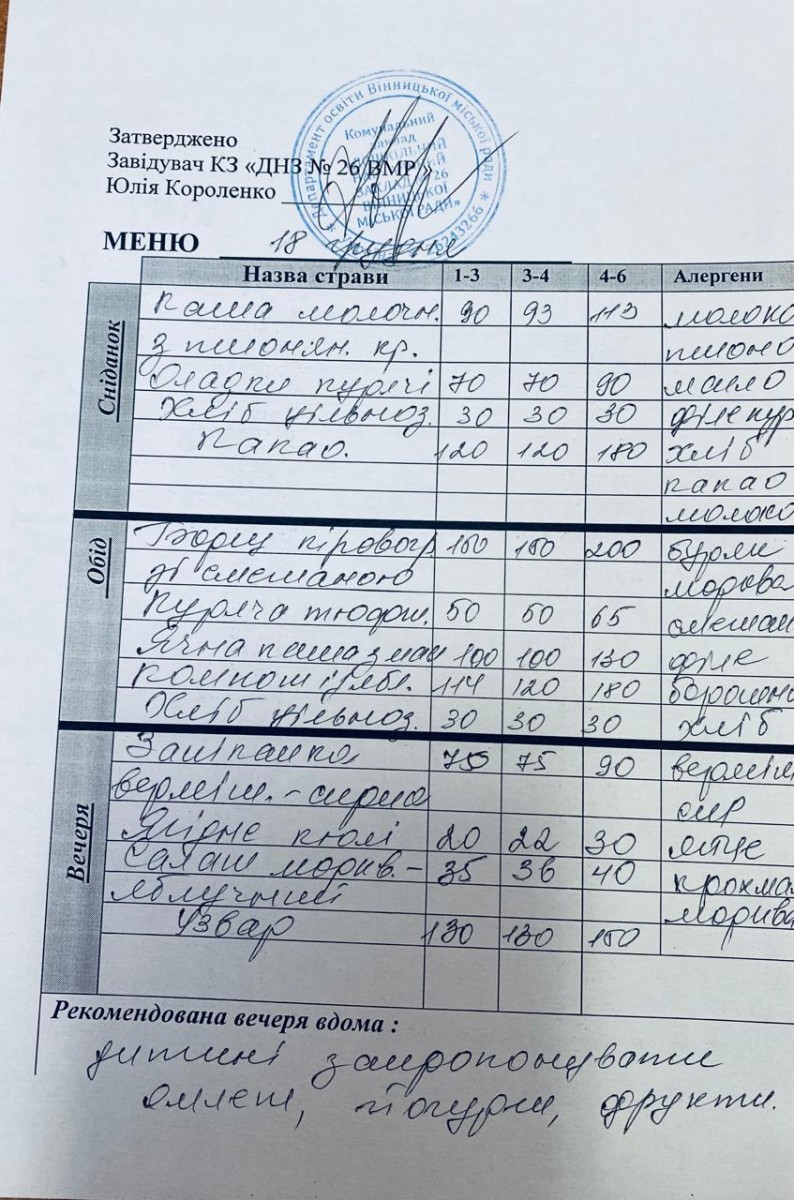 Департамент освіти Вінницької міської ради
Комунальний
заклад
Затверджено
Завідувач КЗ «ДНЗ № 26 ВМР»
Юлія Короленко
ВІННИЦЬКОЇ
МІСЬКОЇ РАДИ»
МЕНЮ 18 грудня
Назва страви 1-3 3-4 4-6 Алергени
Сніданок
Каша молочн. 90 93 113 молоко
з пшонян. кр. пшоно
Оладки курячі 70 70 90 масло
Хліб цільноз. 30 30 30 філе кур
Какао. 120 120 180 хліб
какао
молоко
Обід
Борщ кіровогр 150 150 200 буряк
зі сметаною морква
Куряча тюфт. 50 50 65 сметан
Ячна каша з мас 100 100 130 філе
Компот із ябл. 114 120 180 борошно
Хліб цільноз. 30 30 30 хліб
Вечеря
Запіканка 75 75 90 вермін
верміш.-сирна сир
Ягідне кюлі 20 22 30 яйце
Салат моркв.- 35 36 40 крохма
яблучний морква
Узвар 130 130 150
Рекомендована вечеря вдома :
дитині запропонувати
омлет, йогурт, фрукти.